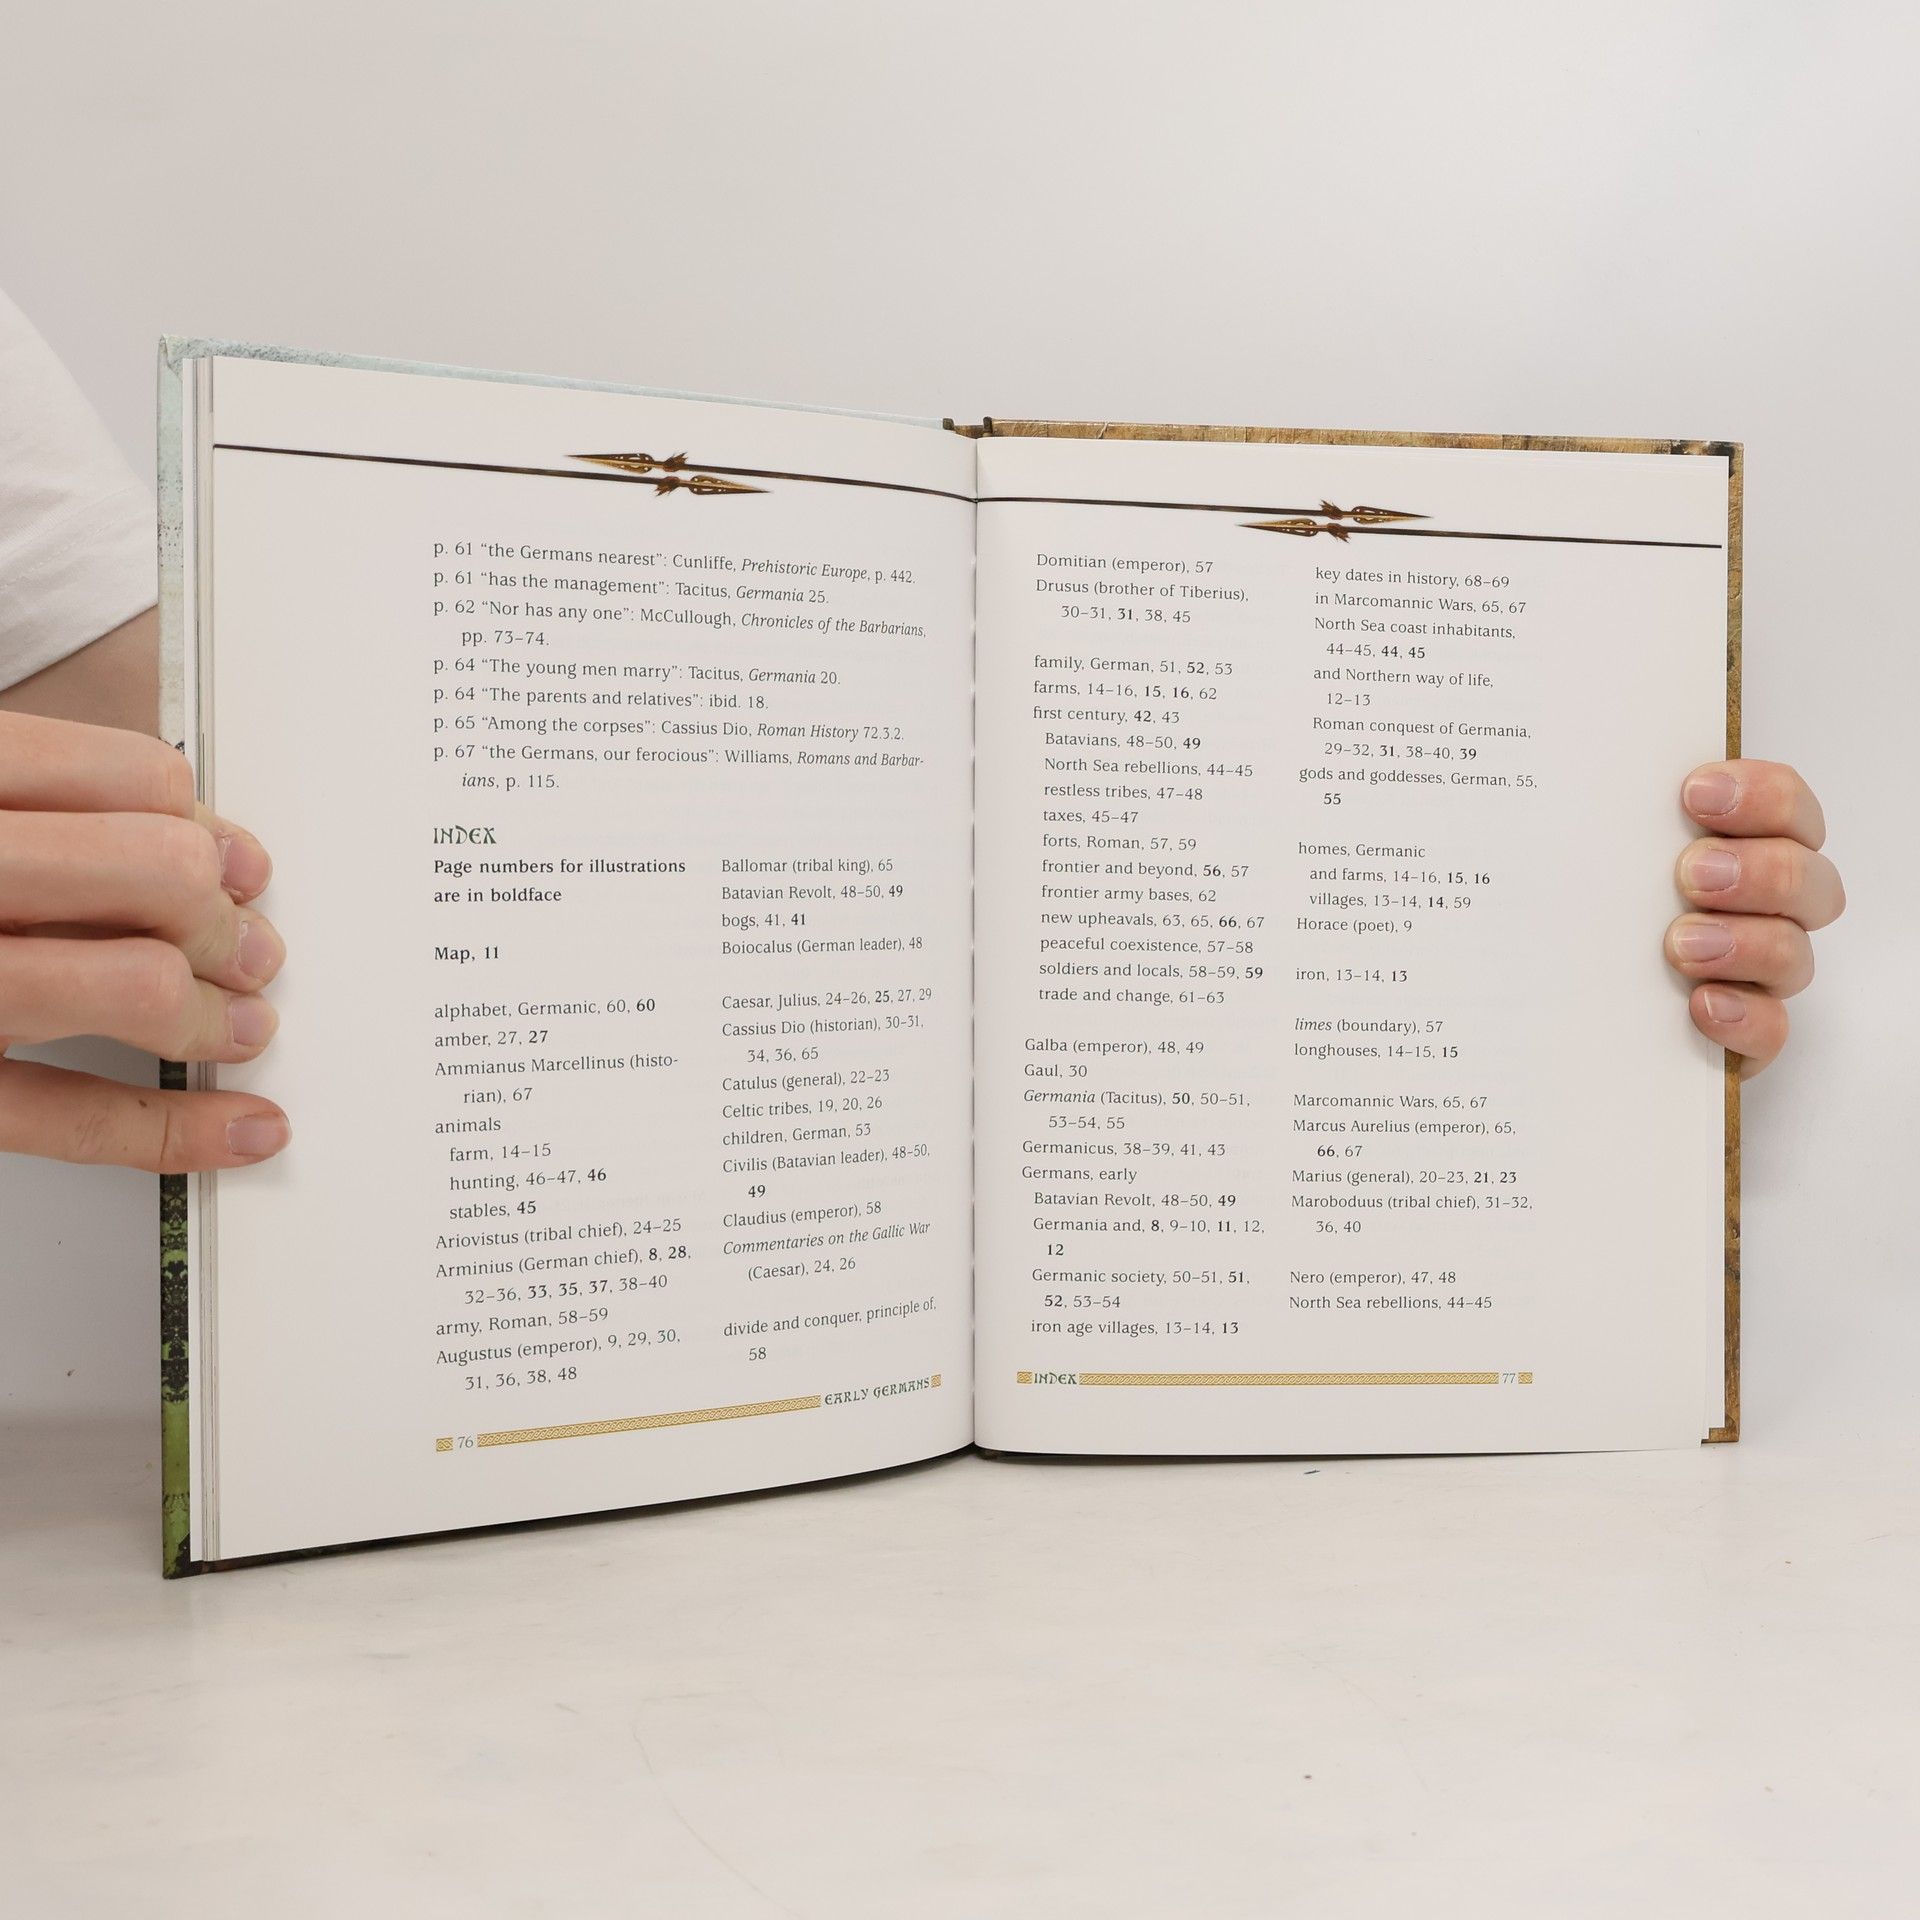 p. 61 “the Germans nearest”: Cunliffe, Prehistoric Europe, p. 442.
p. 61 “has the management”: Tacitus, Germania 25.
p. 62 “Nor has any one”: McCullough, Chronicles of the Barbarians,
pp. 73–74.
p. 64 “The young men marry”: Tacitus, Germania 20.
p. 64 “The parents and relatives”: ibid. 18.
p. 65 “Among the corpses”: Cassius Dio, Roman History 72.3.2.
p. 67 “the Germans, our ferocious”: Williams, Romans and Barbar-
ians, p. 115.
INDEX
Page numbers for illustrations
are in boldface
Map, 11
alphabet, Germanic, 60, 60
amber, 27, 27
Ammianus Marcellinus (histo-
rian), 67
animals
farm, 14–15
hunting, 46–47, 46
stables, 45
Ariovistus (tribal chief), 24–25
Arminius (German chief), 8, 28,
32–36, 33, 35, 37, 38–40
army, Roman, 58–59
Augustus (emperor), 9, 29, 30,
31, 36, 38, 48
Ballomar (tribal king), 65
Batavian Revolt, 48–50, 49
bogs, 41, 41
Boiocalus (German leader), 48
Caesar, Julius, 24–26, 25, 27, 29
Cassius Dio (historian), 30–31,
34, 36, 65
Catulus (general), 22–23
Celtic tribes, 19, 20, 26
children, German, 53
Civilis (Batavian leader), 48–50,
49
Claudius (emperor), 58
Commentaries on the Gallic War
(Caesar), 24, 26
divide and conquer, principle of,
58
76 EARLY GERMANS
Domitian (emperor), 57
Drusus (brother of Tiberius),
30–31, 31, 38, 45
family, German, 51, 52, 53
farms, 14–16, 15, 16, 62
first century, 42, 43
Batavians, 48–50, 49
North Sea rebellions, 44–45
restless tribes, 47–48
taxes, 45–47
forts, Roman, 57, 59
frontier and beyond, 56, 57
frontier army bases, 62
new upheavals, 63, 65, 66, 67
peaceful coexistence, 57–58
soldiers and locals, 58–59, 59
trade and change, 61–63
Galba (emperor), 48, 49
Gaul, 30
Germania (Tacitus), 50, 50–51,
53–54, 55
Germanicus, 38–39, 41, 43
Germans, early
Batavian Revolt, 48–50, 49
Germania and, 8, 9–10, 11, 12,
12
Germanic society, 50–51, 51,
52, 53–54
iron age villages, 13–14, 13
key dates in history, 68–69
in Marcomannic Wars, 65, 67
North Sea coast inhabitants,
44–45, 44, 45
and Northern way of life,
12–13
Roman conquest of Germania,
29–32, 31, 38–40, 39
gods and goddesses, German, 55,
55
homes, Germanic
and farms, 14–16, 15, 16
villages, 13–14, 14, 59
Horace (poet), 9
iron, 13–14, 13
limes (boundary), 57
longhouses, 14–15, 15
Marcomannic Wars, 65, 67
Marcus Aurelius (emperor), 65,
66, 67
Marius (general), 20–23, 21, 23
Maroboduus (tribal chief), 31–32,
36, 40
Nero (emperor), 47, 48
North Sea rebellions, 44–45
INDEX 77